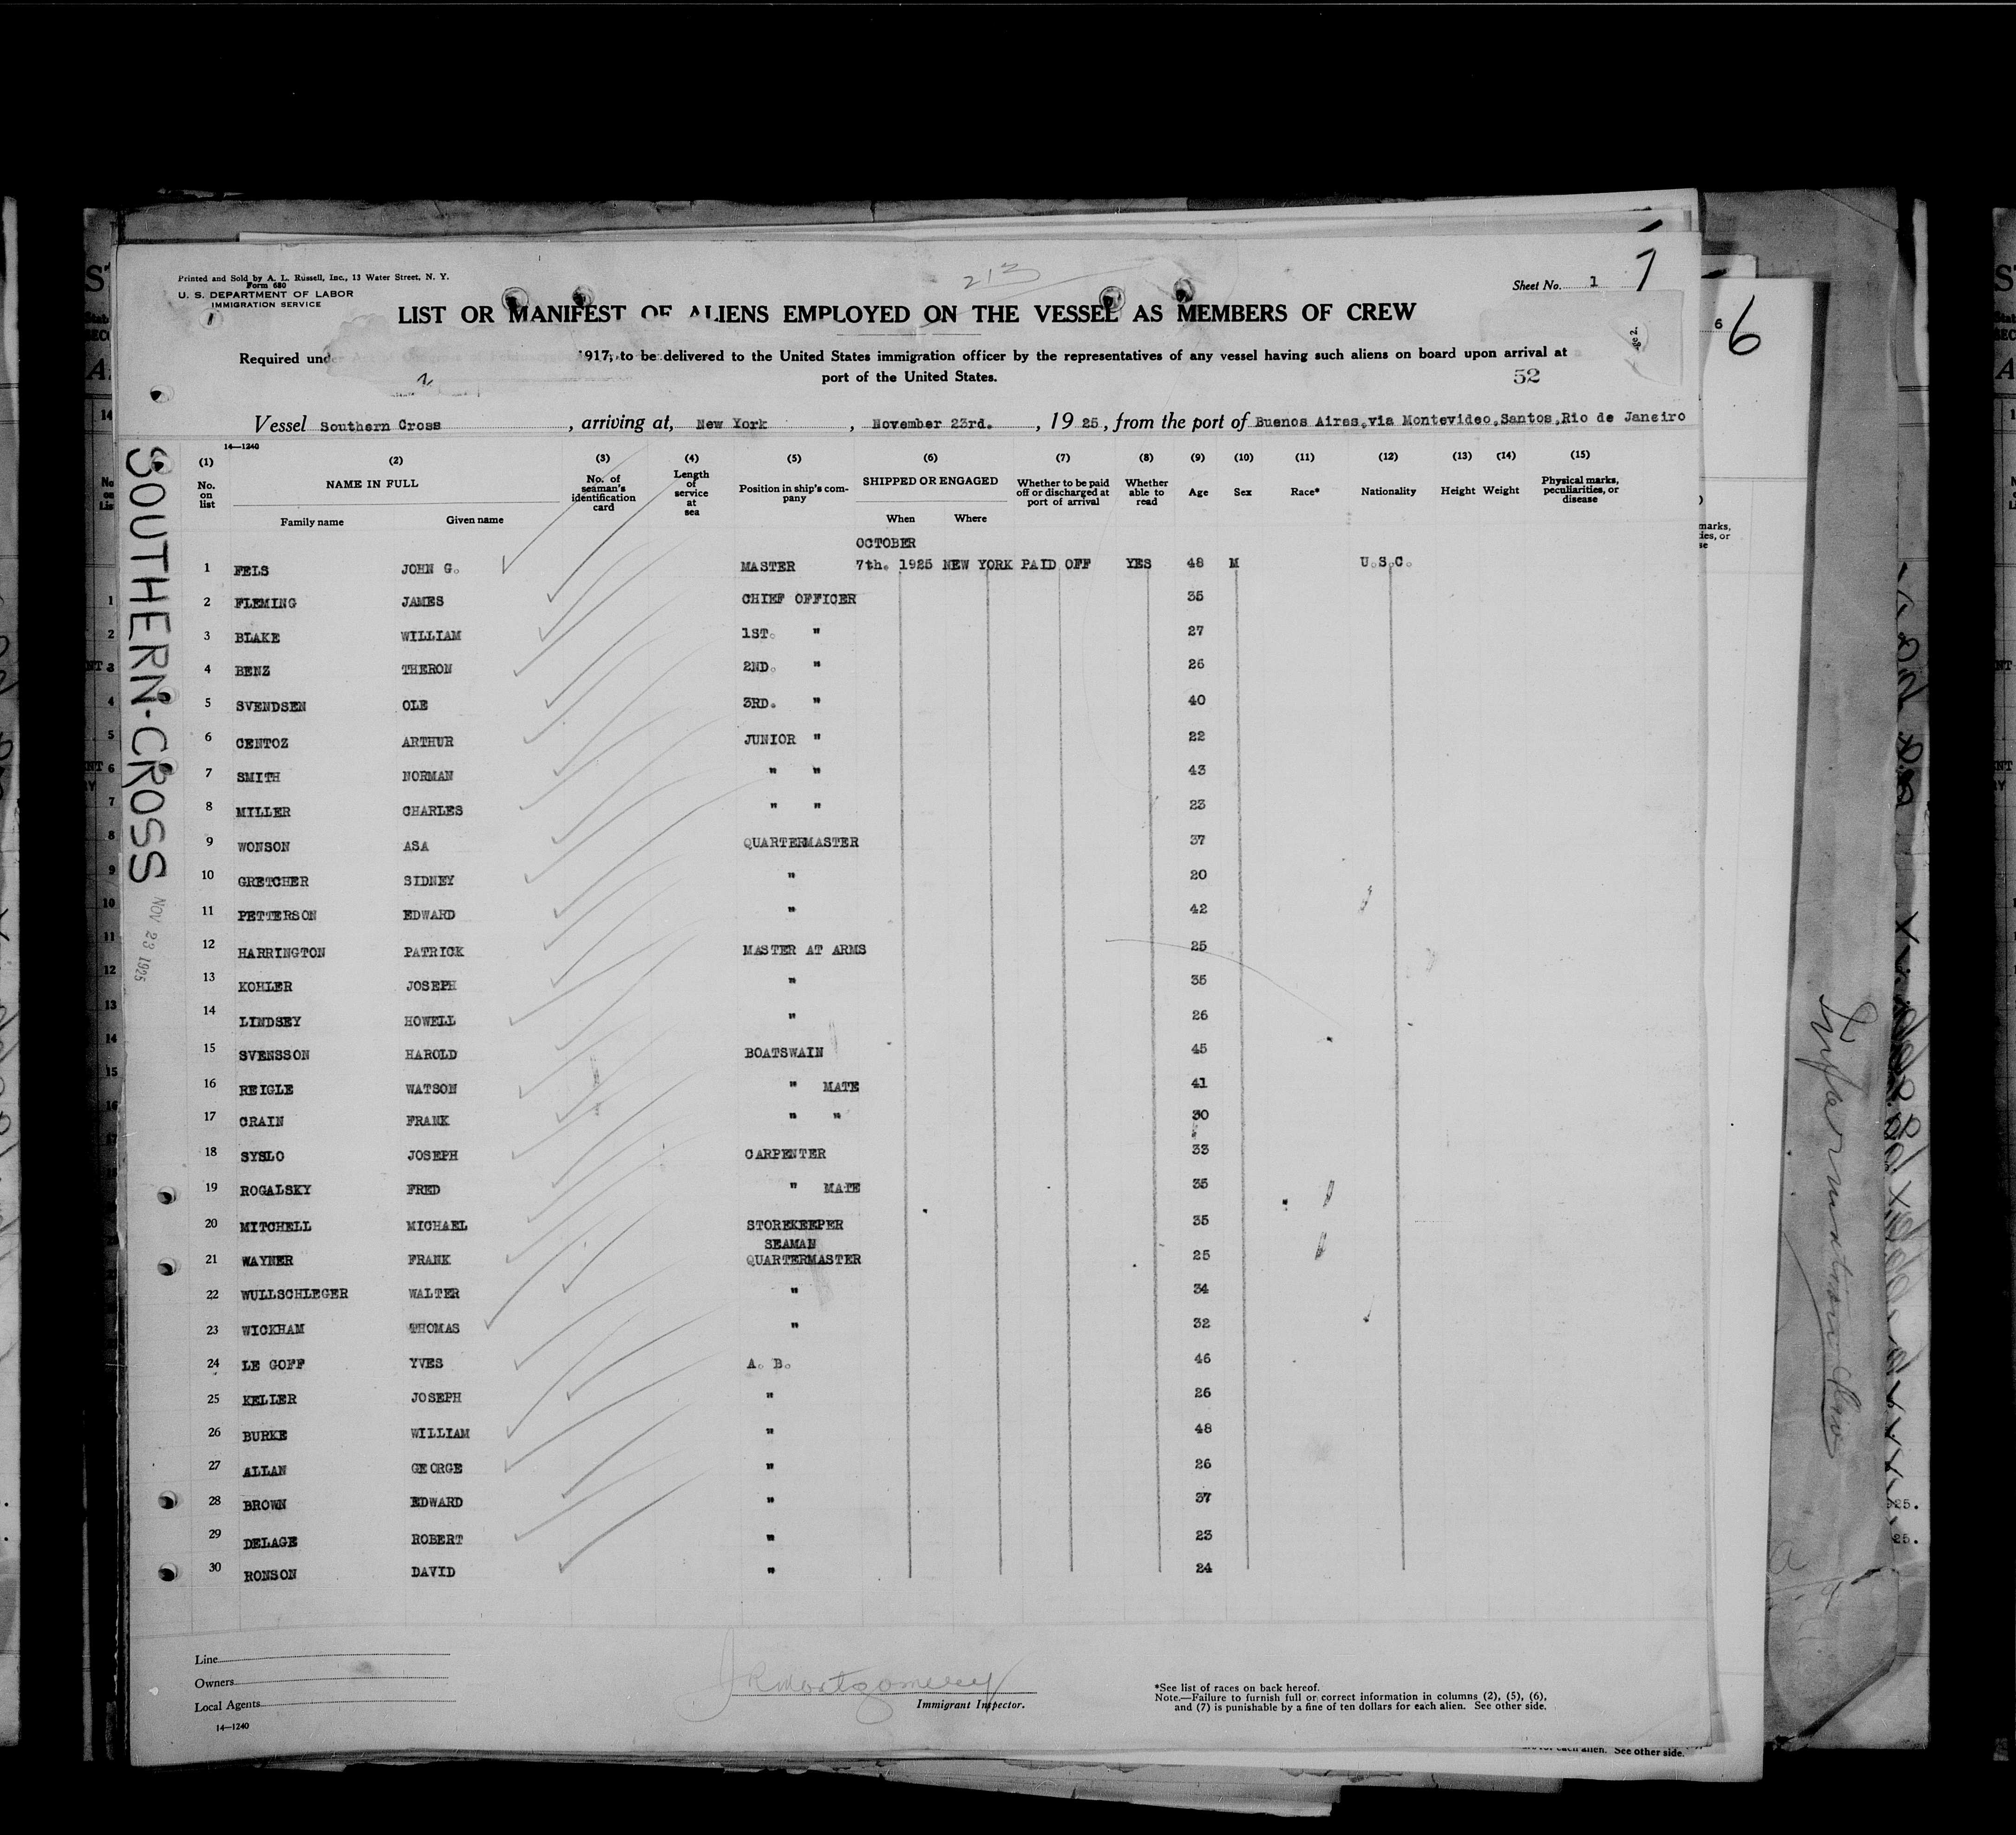 Printed and Sold by A. L. Russell, Inc., 13 Water Street, N. Y.
Form 680
U. S. DEPARTMENT OF LABOR
IMMIGRATION SERVICE
213
Sheet No. 1
LIST OR MANIFEST OF ALIENS EMPLOYED ON THE VESSEL AS MEMBERS OF CREW
Required under 1917, to be delivered to the United States immigration officer by the representatives of any vessel having such aliens on board upon arrival at
port of the United States.
52
6 6
Vessel Southern Cross, arriving at, New York, November 23rd., 1925, from the port of Buenos Aires,via Montevideo,Santos,Rio de Janeiro
14—1240
(1) (2) (3) (4) (5) (6) (7) (8) (9) (10) (11) (12) (13) (14) (15)
No. on list NAME IN FULL No. of seaman's identification card Length of service at sea Position in ship's company SHIPPED OR ENGAGED Whether to be paid off or discharged at port of arrival Whether able to read Age Sex Race* Nationality Height Weight Physical marks, peculiarities, or disease
Family name Given name When Where
OCTOBER
1 FELS JOHN G. MASTER 7th. 1925 NEW YORK PAID OFF YES 48 M U.S.C.
2 FLEMING JAMES CHIEF OFFICER 35
3 BLAKE WILLIAM 1ST. " 27
4 BENZ THERON 2ND. " 26
5 SVENDSEN OLE 3RD. " 40
6 CENTOZ ARTHUR JUNIOR " 22
7 SMITH NORMAN " " 43
8 MILLER CHARLES " " 23
9 WONSON ASA QUARTERMASTER 37
10 GRETCHER SIDNEY " 20
11 PETTERSON EDWARD " 42
12 HARRINGTON PATRICK MASTER AT ARMS 25
13 KOHLER JOSEPH " 35
14 LINDSEY HOWELL " 26
15 SVENSSON HAROLD BOATSWAIN 45
16 REIGLE WATSON " MATE 41
17 CRAIN FRANK " " 30
18 SYSLO JOSEPH CARPENTER 33
19 ROGALSKY FRED " MATE 35
20 MITCHELL MICHAEL STOREKEEPER 35
SEAMAN
21 WAYNER FRANK QUARTERMASTER 25
22 WULLSCHLEGER WALTER " 34
23 WICKHAM THOMAS " 32
24 LE GOFF YVES A. B. 46
25 KELLER JOSEPH " 26
26 BURKE WILLIAM " 48
27 ALLAN GEORGE " 26
28 BROWN EDWARD " 37
29 DELAGE ROBERT " 23
30 RONSON DAVID " 24
SOUTHERN-CROSS
NOV 23 1925
Line
Owners
Local Agents
14—1240
J R Montgomery
Immigrant Inspector.
*See list of races on back hereof.
Note.—Failure to furnish full or correct information in columns (2), (5), (6),
and (7) is punishable by a fine of ten dollars for each alien. See other side.
each alien. See other side.